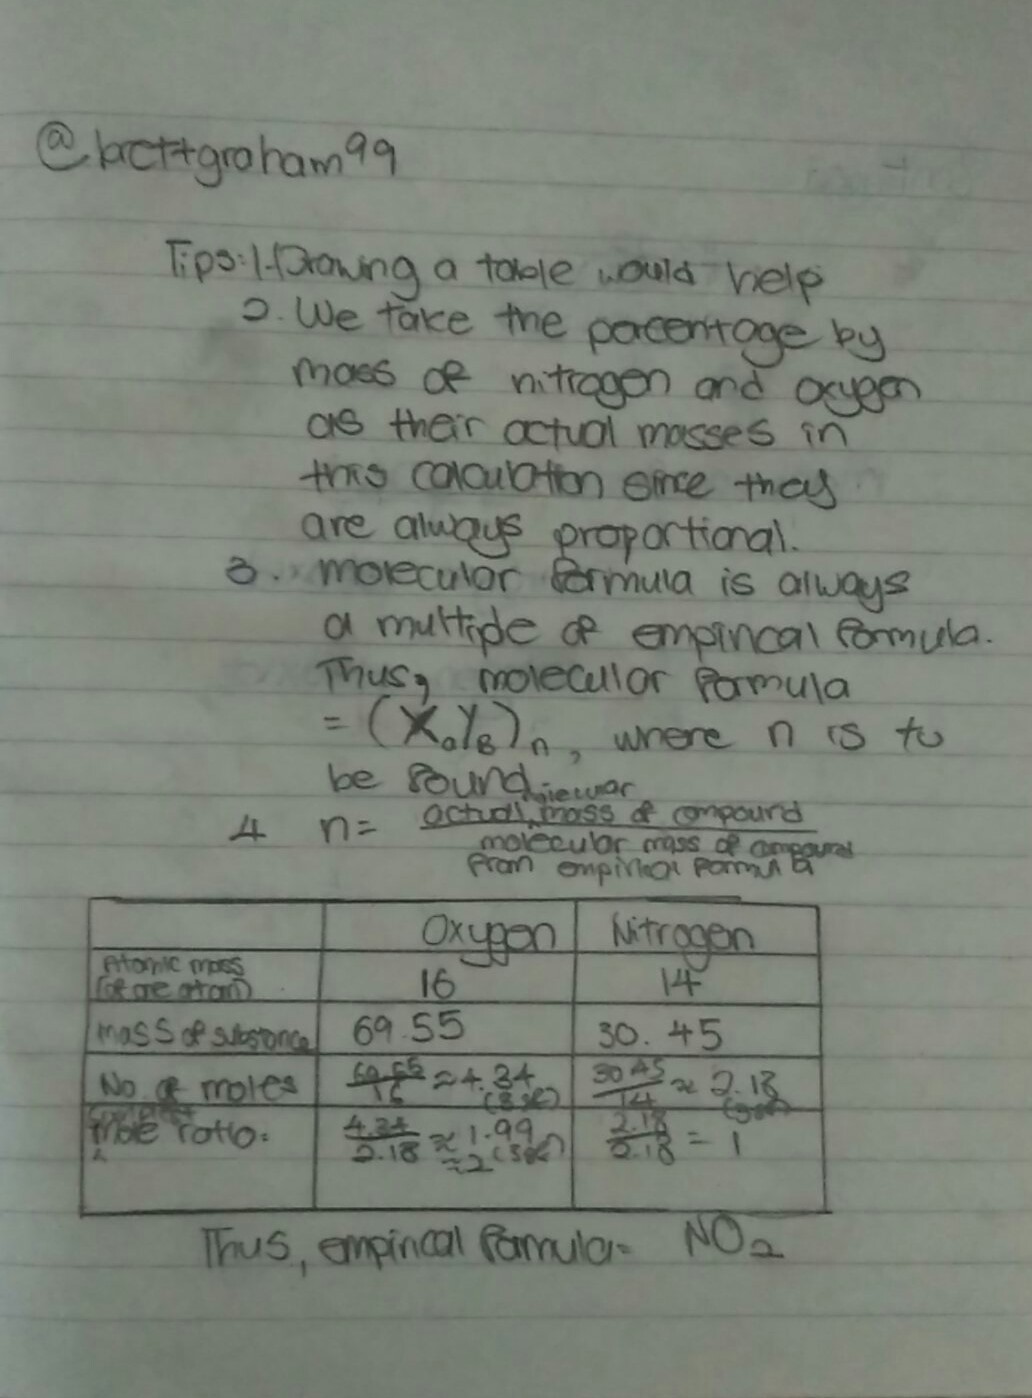 @brettgraham99
Tips: 1. Drawing a table would help
2. We take the percentage by
mass of nitrogen and oxygen
as their actual masses in
this calculation since they
are always proportional.
3. molecular formula is always
a multiple of empirical formula.
Thus, molecular formula
= (XaYb)n, where n is to
be found
4 n= actual mass of compound
molecular mass of compound
from empirical formula
Oxygen Nitrogen
Atomic mass
(of one atom) 16 14
mass of substance 69.55 30.45
No. of moles 69.55/16 ≈ 4.34 (3sf) 30.45/14 ≈ 2.18 (3sf)
mole ratio. 4.34/2.18 ≈ 1.99 (3sf) 2.18/2.18 = 1
≈2
Thus, empirical formula= NO2